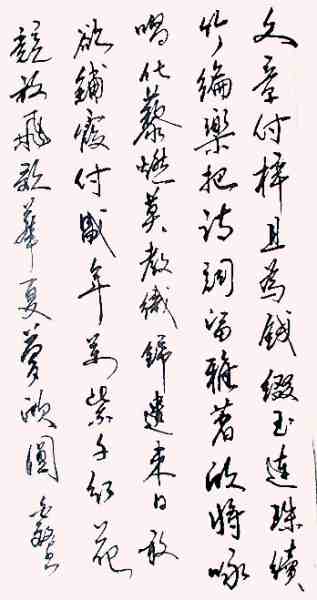 文章付梓且為綴玉連珠續
竹編樂把詩詞留雅著欣將咏
唱化藜燃莫教織錦遺来日敢
欲鋪霞付盛年萬紫千紅花
競放飛歌華夏夢欣圓